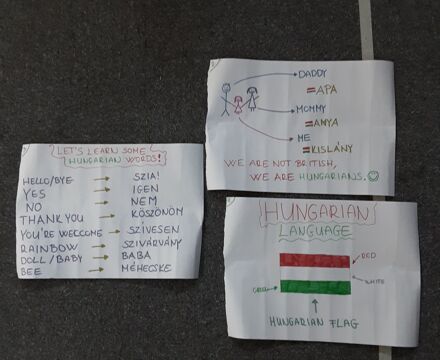 LET'S LEARN SOME
HUNGARIAN WORDS!
HELLO/BYE → SZIA!
YES → IGEN
NO → NEM
THANK YOU → KÖSZÖNÖM
YOU'RE WELCOME → SZÍVESEN
RAINBOW → SZIVÁRVÁNY
DOLL/BABY → BABA
BEE → MÉHECSKE
DADDY
=APA
MOMMY
=ANYA
ME
=KISLÁNY
WE ARE NOT BRITISH,
WE ARE HUNGARIANS.☺
HUNGARIAN
LANGUAGE
RED
WHITE
GREEN
HUNGARIAN FLAG